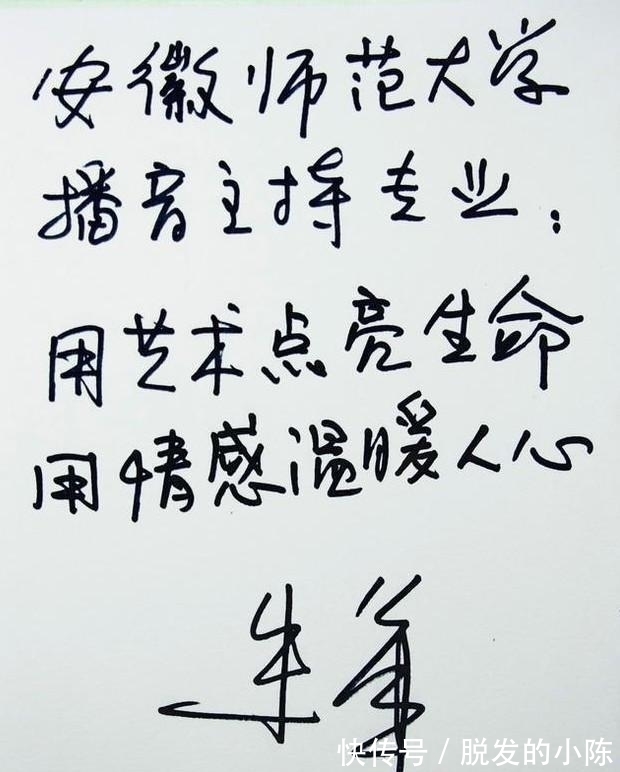 安徽师范大学
播音主持专业：
用艺术点亮生命
用情感温暖人心
朱军
快传号 / 脱发的小陈